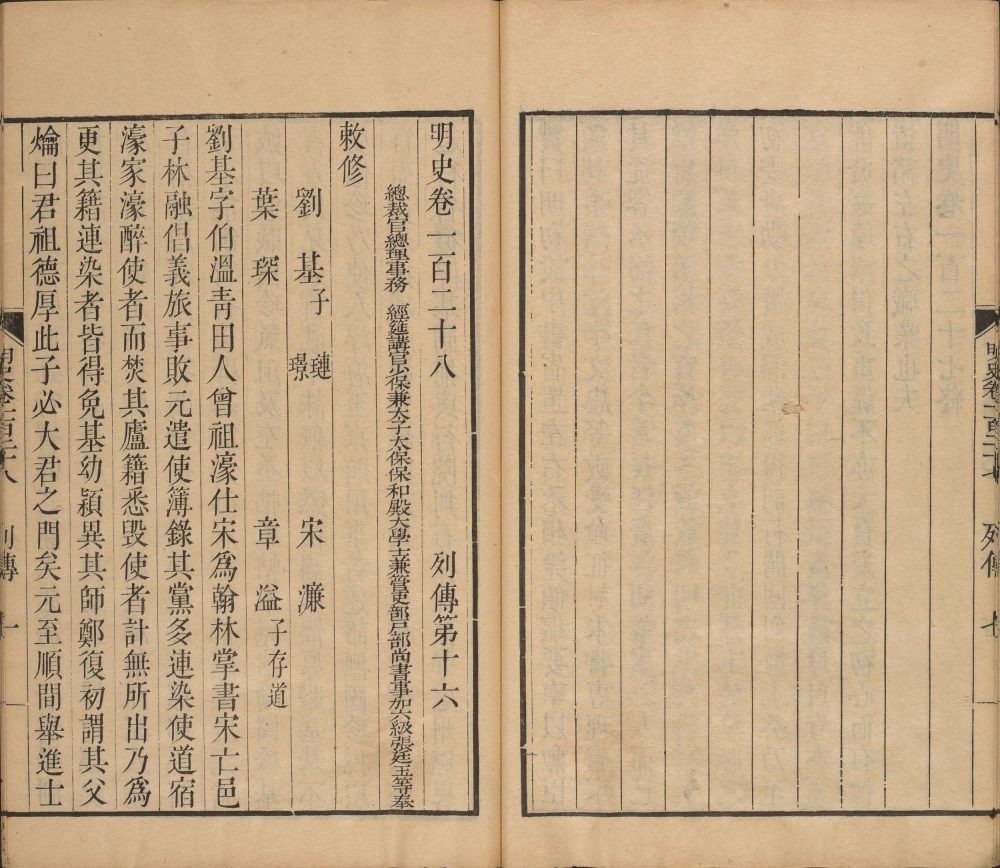 明史卷一百二十七 列傳 七
明史卷一百二十八 列傳第十六
總裁官總理事務 經筵講官少保兼太子太保保和殿大學士兼管吏部戶部尚書事加六級張廷玉等奉
敕修
劉基 子璉 璟 宋濂
葉琛 章溢 子存道
劉基字伯溫青田人曾祖濠仕宋爲翰林掌書宋亡邑
子林融倡義旅事敗元遣使簿錄其黨多連染使道宿
濠家濠醉使者而焚其廬籍悉毀使者計無所出乃爲
更其籍連染者皆得免基幼穎異其師鄭復初謂其父
爚曰君祖德厚此子必大君之門矣元至順間舉進士
明史卷一百二十八 列傳 一